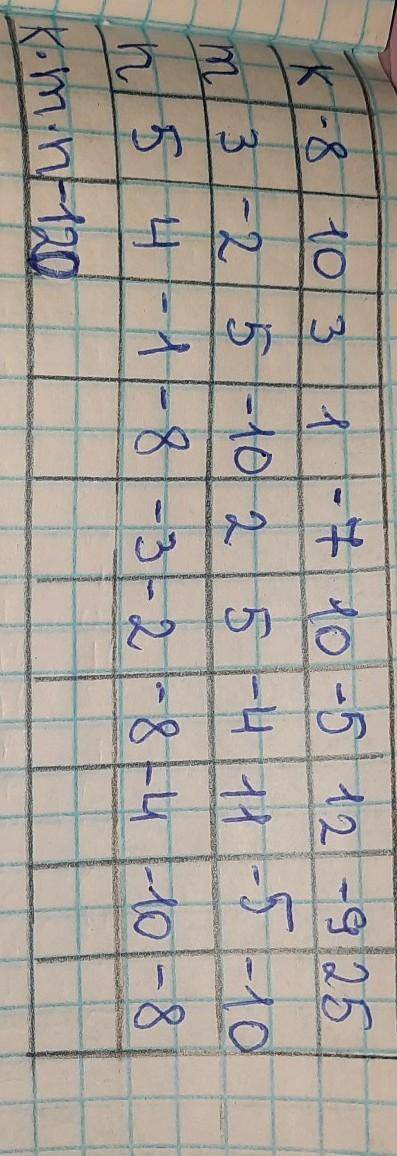 k -8 10 3 1 -7 10 -5 12 -9 25
m 3 -2 5 -10 2 5 -4 11 -5 -10
n 5 4 -1 -8 -3 -2 -8 -4 -10 -8
k·m·n -120